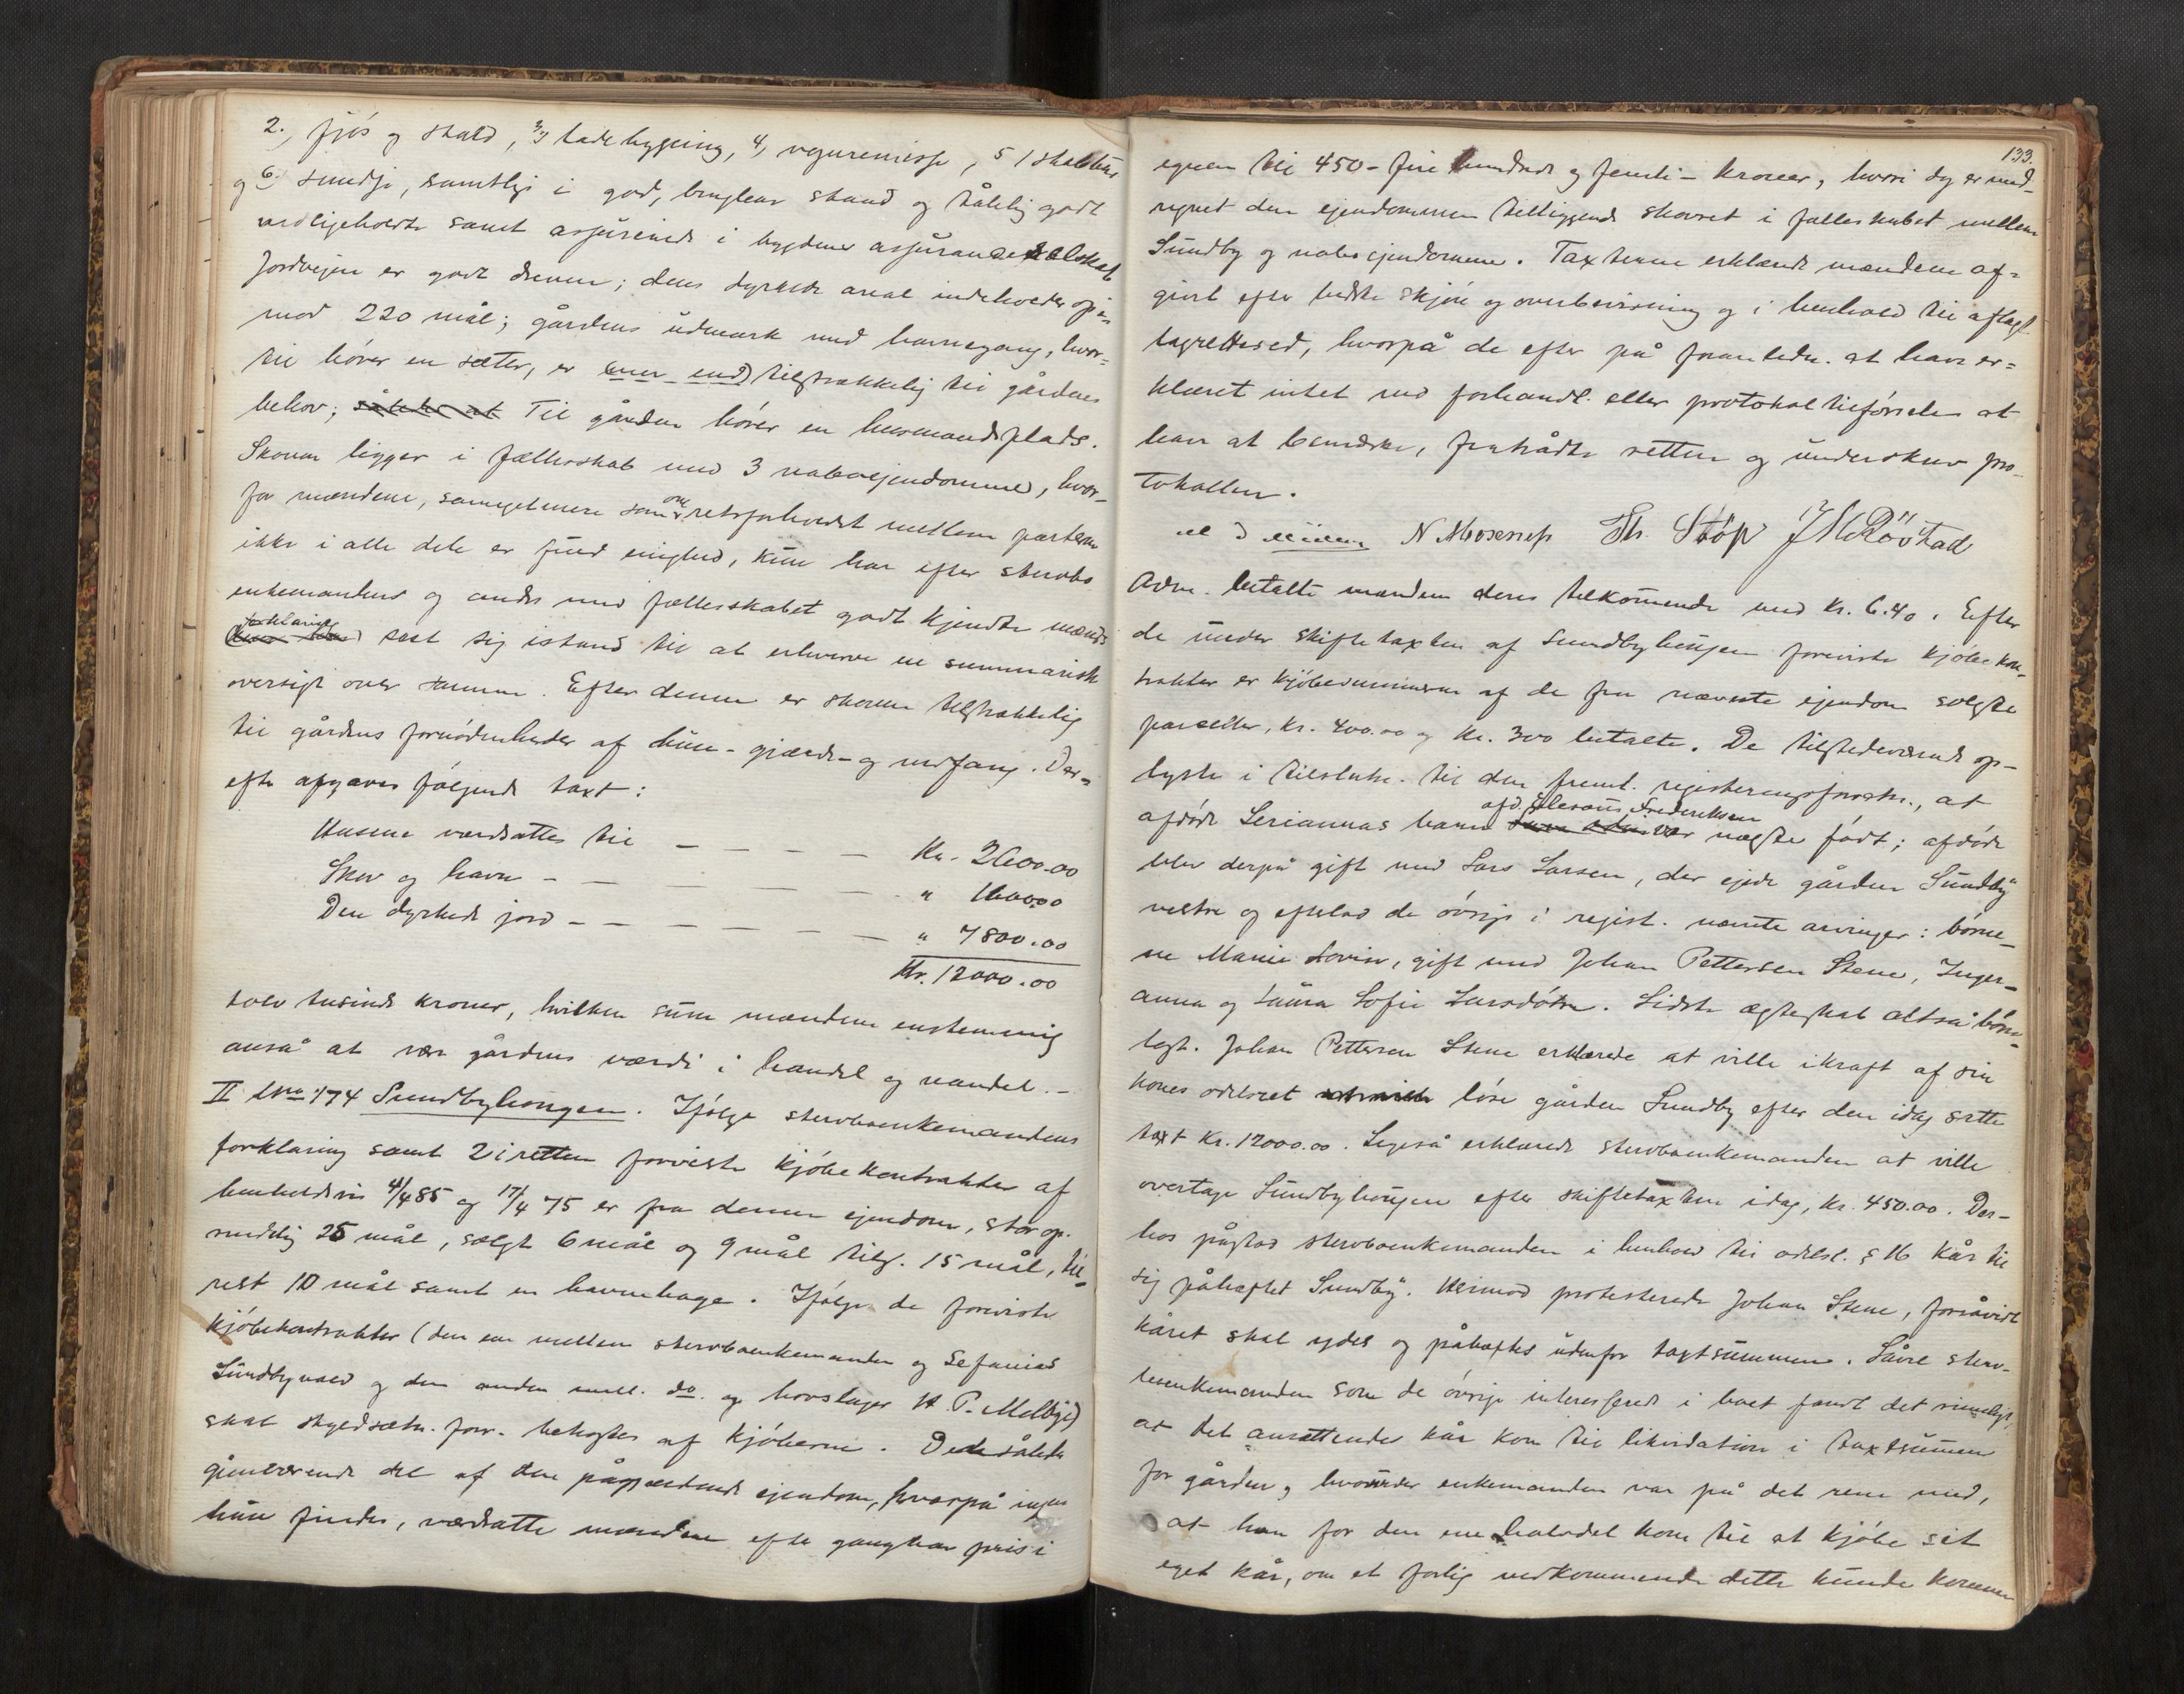 2., fjøs og stald, 3, ladebygning, 4, vognremisse, 5, stabbur
og 6, smedje, samtlige i god, brugbar stand og tålelig godt
vedligeholdte samt assurerede i bygdens assuranceselskab
Jordvejen er godt dreven; dens dyrkede areal indeholder op i-
mod 220 mål; gårdens udmark med havnegang, hvor-
til hører en sæter, er mer end tilstrækkelig til gårdens
behov; således at Til gården hører en husmandsplads.
Skoven ligger i fællesskab med 3 naboejendomme, hvor-
for mændene, som om retsforholdet mellem parterne
ikke i alle dele er fuld enighed, kun har efter sterbo
enkemandens og andre med fællesskabet godt kjendte mænds
forklaring sat sig istand til at erhverve en summarisk
oversigt over samme. Efter denne er skoven tilstrækkelig
til gårdens fornødenheder af huse- gjærde- og vedfang. Der-
efter afgaves følgende taxt:
Husene værdsattes til — — — — Kr. 2600.00
Skov og havn — — — — — — " 1600.00
Den dyrkede jord — — — — — — " 7800.00
Kr. 12000.00
tolv tusinde kroner, hvilken sum mændene enstemmig
anså at være gårdens værdi i handel og vandel. -
II lno 174 Sundbyhougen. Ifølge sterboenkemandens
forklaring samt 2 i retten foreviste kjøbekontrakter af
henholdsvis 4/4 85 og 17/4 75 er fra denne ejendom, stor op-
rindelig 25 mål, solgt 6 mål og 9 mål tils. 15 mål, til-
rest 10 mål samt en havnehage. Ifølge de foreviste
kjøbekontrakter (den ene mellem sterboenkemanden og Sefanias
Sundbyvald og den anden mell. do. og hovslager H. P. Melbye)
skal skyldsætn. forr. bekostes af kjøberne. Den således
gjenværende del af den pågjældende ejendom, hvorpå ingen
huse findes, værdsatte mændene efter gangbar pris i
133.
egnen til 450 - fire hundrede og femti - kroner, hvori dog er med-
regnet den ejendommen tilliggende skovret i fælleskabet mellem
Sundby og naboejendommene. Taxterne erklærede mændene af-
givet efter bedste skjøn og overbevisning og i henhold til aflagt
lagrettesed, hvorpå de efter på foranledn. at have er-
klæret intet ved forhandl. eller protokoltilførselen at
have at bemærke, fratrådte retten og underskrev pro-
tokollen.
N. Th. Støp J M Røstad
Adm. betalte mændene deres tilkommende med Kr. 6.40. Efter
de under skiftetaxten af Sundbyhougen foreviste kjøbekon-
trakter er kjøbesummerne af de fra nævnte ejendom solgte
parceller, Kr. 400.00 og Kr. 300 betalte. De tilstedeværende op-
lyste i tilslutn. til den fremt. registreringsforretn., at
afd. Frederiksen
afdøde Seriannas barn var uægte født; afdøde
blev derpå gift med Lars Larsen, der ejede gården Sundby
vestre og efterlod de øvrige i regist. nævnte arvinger: børne-
ne Marie Lovise, gift med Johan Pettersen Stene, Inger-
anna og Laura Sofie Larsdøtre. Sidste ægteskab altså børn-
løst. Johan Pettersen Stene erklærede at ville i kraft af sin
kones odelsret løse gården Sundby efter den idag satte
taxt Kr. 12000.00. Ligeså erklærede sterboenkemanden at ville
overtage Sundbyhougen efter skiftetaxten idag, Kr. 450.00. Der-
hos påstod sterboenkemanden i henhold til odelsl. § 16 kår til
sig påheftet Sundby. Herimod protesterede Johan Stene, forsåvidt
kåret skal ydes og påheftes udenfor taxtsummen. Såvel sterv-
boenkemanden som de øvrige interesserede i boet fandt det rimeligt,
at det ansættende kår kom til likvidation i taxtsummen
for gården, hvorunder enkemanden var på det rene med,
at han for den ene halvdel kom til at kjøbe sit
eget kår, om et forlig vedkommende dette kunde komme